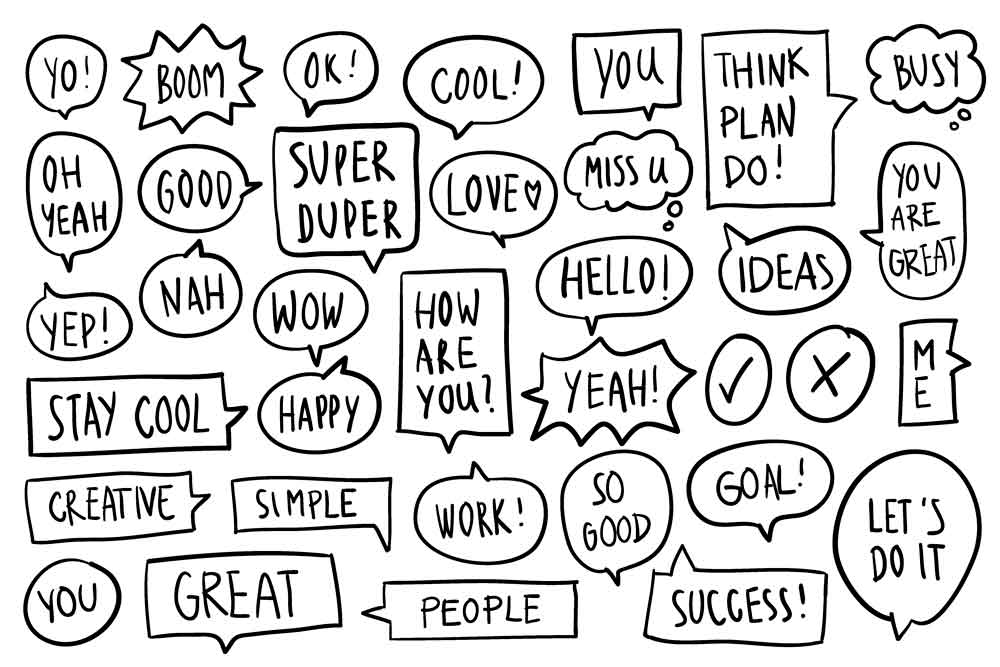 YO!
BOOM
OK!
COOL!
YOU
THINK
PLAN
DO!
BUSY
OH
YEAH
GOOD
SUPER
DUPER
LOVE♡
MISS U
YOU
ARE
GREAT
YEP!
NAH
WOW
HOW
ARE
YOU?
HELLO!
IDEAS
STAY COOL
HAPPY
YEAH!
✓
X
M
E
CREATIVE
SIMPLE
WORK!
SO
GOOD
GOAL!
LET'S
DO IT
YOU
GREAT
PEOPLE
SUCCESS!